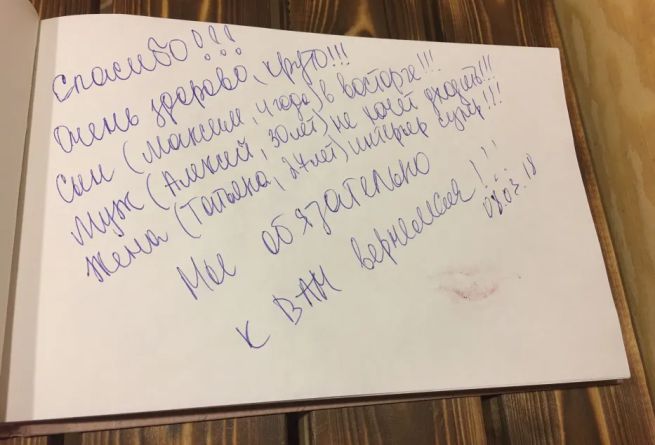 Спасибо!!!
Очень здорово, круто!!!
Сын (Максим, 4 года) в восторге!!!
Муж (Алексей, 30 лет) не хочет уходить!!!
Жена (Татьяна, 27 лет) интерьер супер!!!
Мы обязательно
к ВАМ вернемся!!!
08.03.18